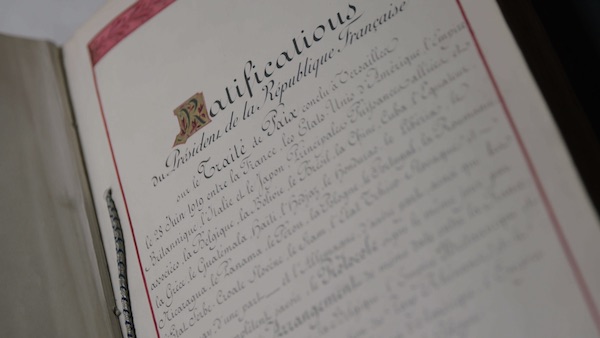 Ratifications
du Président de la République Française
sur le Traité de Paix conclu à Versailles
le 28 Juin 1919 entre la France, les Etats Unis d'Amérique, l'Empire
Britannique, l'Italie et le Japon Principales Puissances alliées et
associées, la Belgique, la Bolivie, le Brésil, la Chine, Cuba, l'Equateur,
la Grèce, le Guatemala, Haïti, l'Hedjaz, le Honduras, le Libéria, le
Nicaragua, le Panama, le Pérou, la Pologne, le Portugal, la Roumanie,
l'Etat Serbe-Croate-Slovène, le Siam, l'Etat Tchéco
d'une part et l'Allemagne
le Protocole
Arrangement